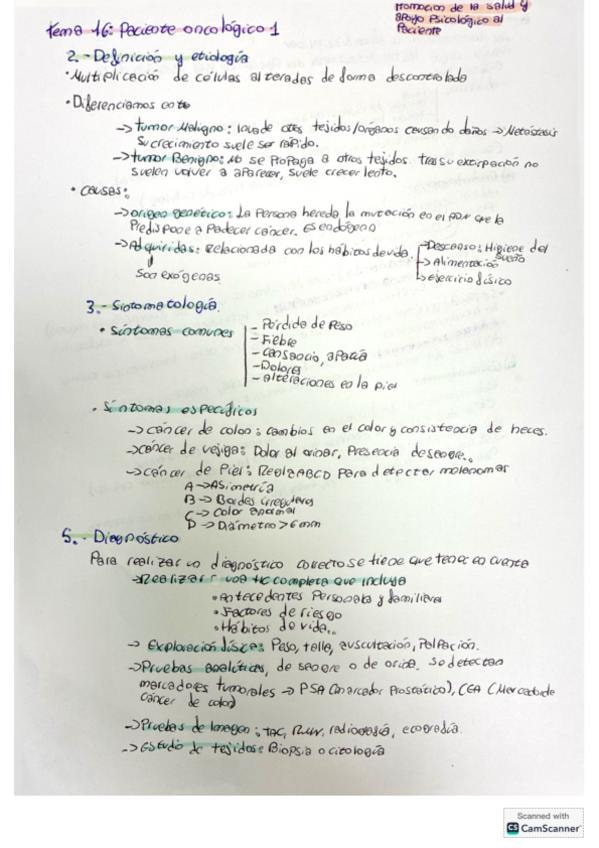 Promocion de la salud y
apoyo Psicológico al
Paciente
Tema 16: Paciente oncológico 1
2.- Definición y etiología
• Multiplicación de células alteradas de forma descontrolada
• Diferenciamos entre
-> Tumor Maligno: invade otros tejidos/órganos causando daños -> Metástasis
Su crecimiento suele ser rápido.
-> Tumor Benigno: No se propaga a otros tejidos. tras su extirpación no
suelen volver a aparecer, suele crecer lento.
• Causas:
-> origen genético: La Persona hereda la mutación en el ADN que la
Predispone a Padecer cáncer. Es endógeno
-> Adquiridas: Relacionada con los hábitos de vida.
-> Descanso: Higiene del sueño
-> Alimentación
-> ejercicio físico
Son exógenas
3.- Sintomatología.
• Síntomas comunes
- Pérdida de Peso
- Fiebre
- Cansancio, apatía
- Dolores
- alteraciones en la piel
• Síntomas específicos
-> cáncer de colon: cambios en el color y consistencia de heces.
-> cáncer de vejiga: Dolor al orinar, Presencia de sangre..
-> cáncer de Piel: Regla ABCD Para detectar melanomas
A -> Asimetría
B -> Bordes irregulares
C -> Color anormal
D -> Diámetro > 6mm
5.- Diagnóstico
Para realizar un diagnóstico correcto se tiene que tener en cuenta
-> Realizar una HC completa que incluya
• Antecedentes Personales y familiares
• Factores de riesgo
• Hábitos de vida..
-> Exploración física: Peso, talla, auscultación, Palpación.
-> Pruebas analíticas, de sangre o de orina. Se detectan
marcadores tumorales -> PSA (marcador Prostático), CEA (Marcador de
cáncer de colon)
-> Pruebas de Imagen: TAC, RMN, radiografía, ecografía.
-> Estudio de tejidos: Biopsia o citología
Scanned with
CS CamScanner